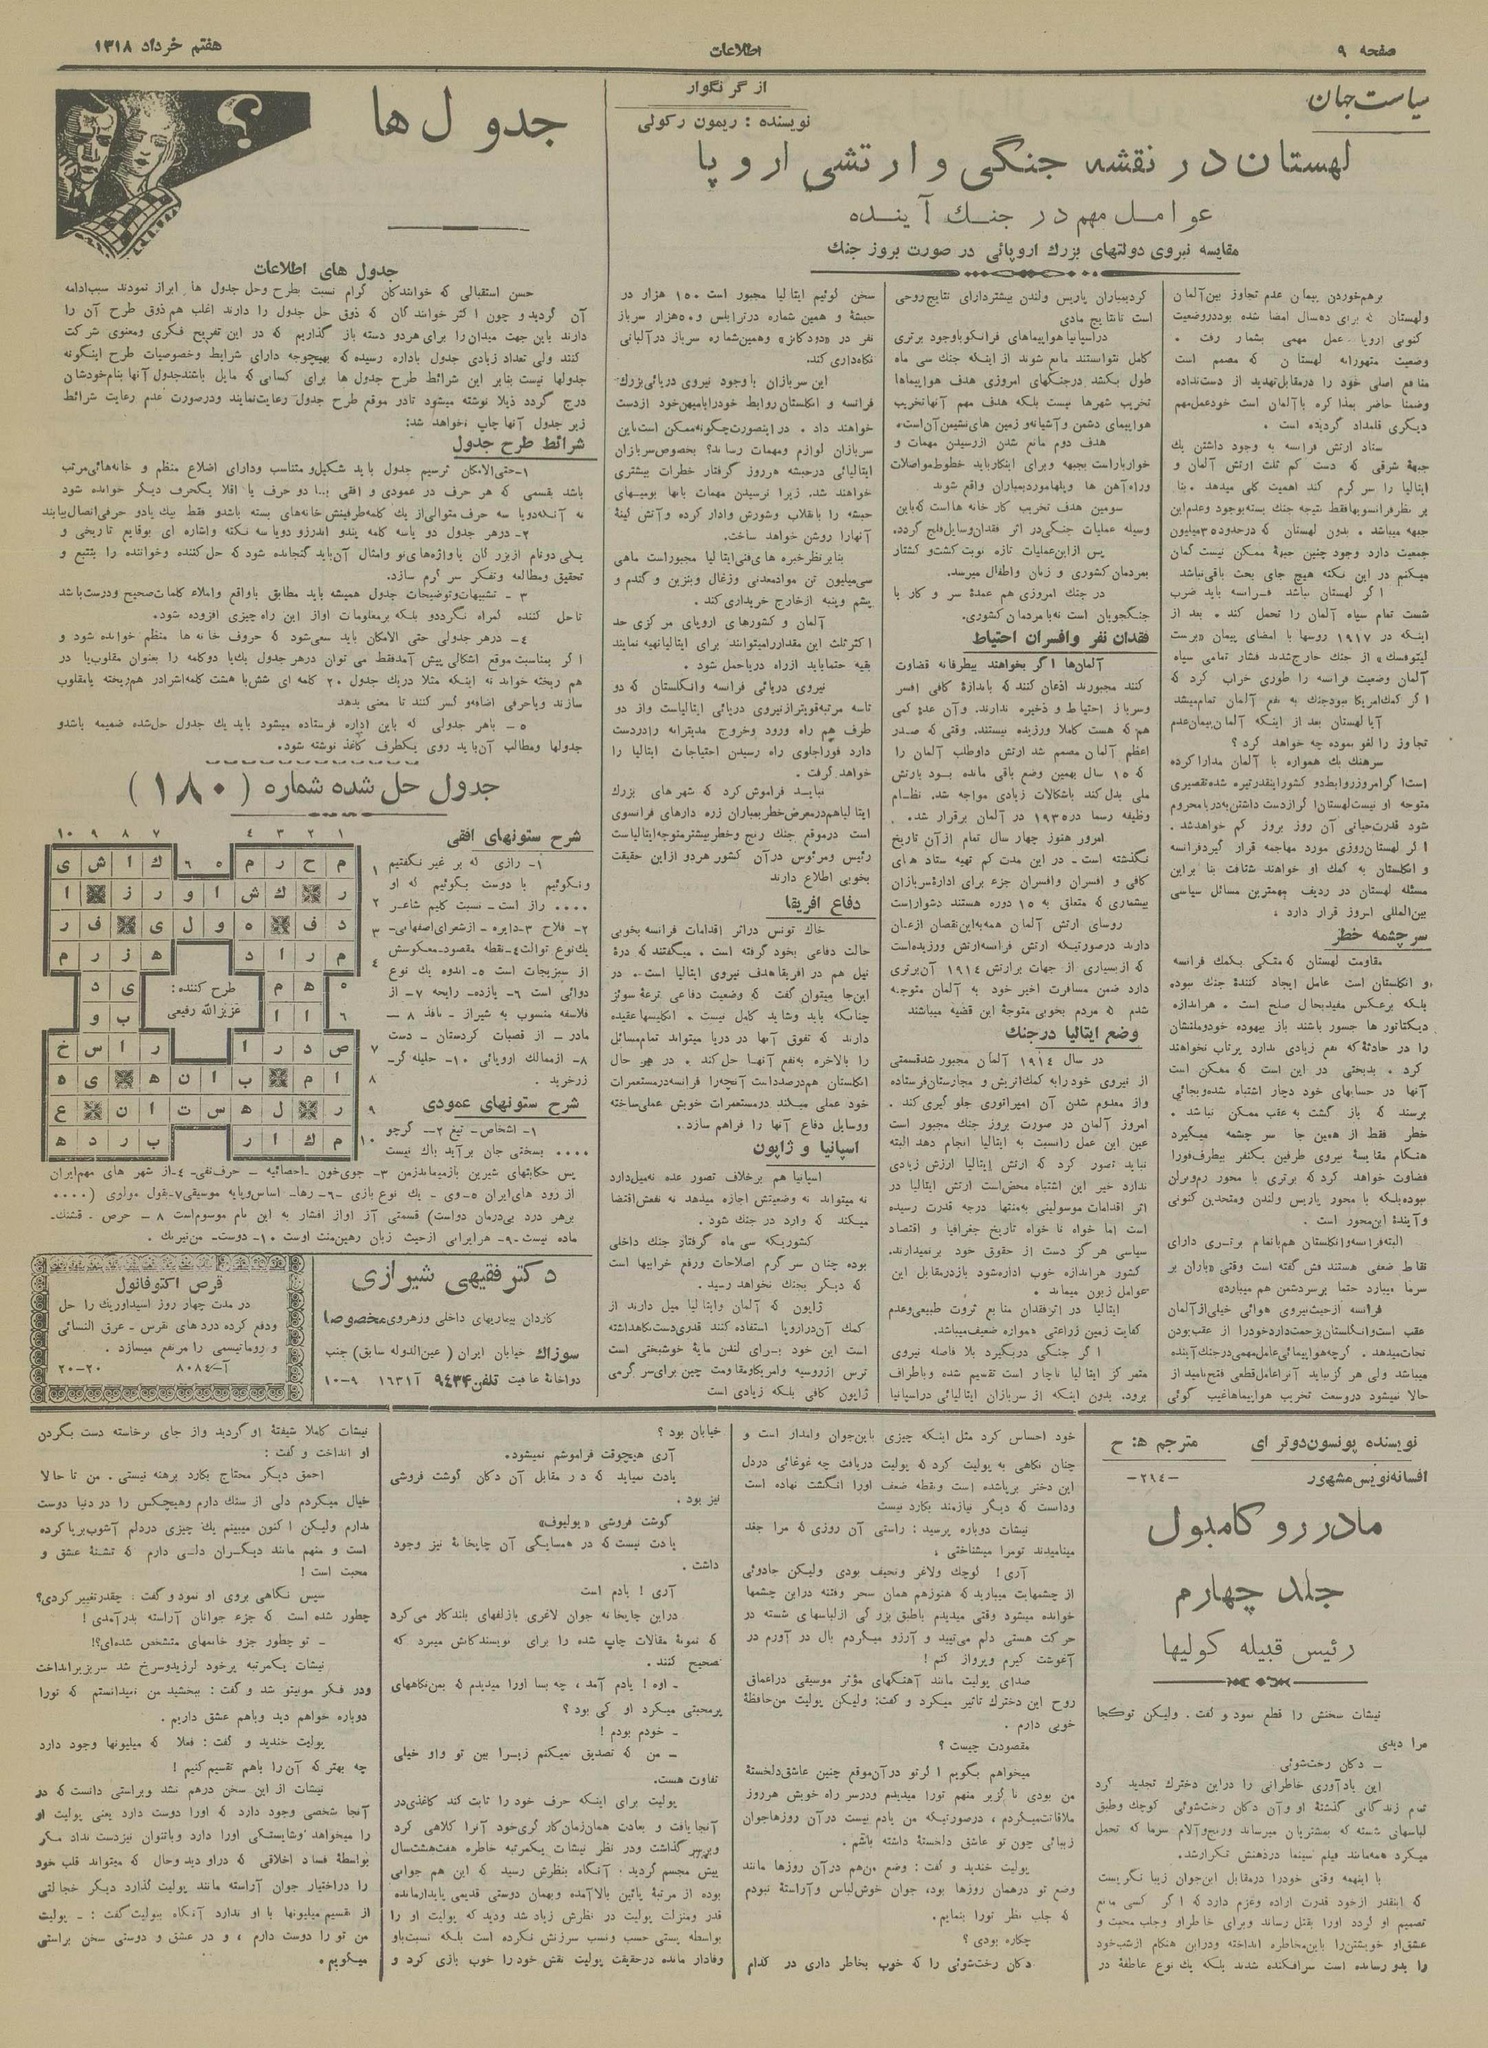 صفحه ۹
اطلاعات
هفتم خرداد ۱۳۱۸
سیاست جهان
از گرنگوار
نویسنده : ریمون رکولی
لهستان در نقشه جنگی و ارتشی اروپا
عوامل مهم در جنك آینده
مقایسه نیروی دولتهای بزرك اروپائی در صورت بروز جنك
برهم‌خوردن پیمان عدم تجاوز بین آلمان
ولهستان که برای ده‌سال امضا شده بود در وضعیت
کنونی اروپا عمل مهمی بشمار رفت .
وضعیت متهورانه لهستان که مصمم است
منافع اصلی خود را در مقابل تهدید از دست نداده
وضمنا حاضر بمذاکره با آلمان است خود عمل مهم
دیگری قلمداد گردیده است .
ستاد ارتش فرانسه به وجود داشتن یك
جبهۀ شرقی که دست کم ثلث ارتش آلمان و
ایتالیا را سر گرم کند اهمیت کلی میدهد . بنا
جمعیت دارد وجود چنین جبهۀ ممکن نیست گمان
میکنم در این نکته هیچ جای بحث باقی نباشد
اگر لهستان نباشد فرانسه باید ضرب
شست تمام سپاه آلمان را تحمل کند . بعد از
اینکه در ۱۹۱۷ روسها با امضای پیمان «برست
لیتوفسك» از جنك خارج شدند فشار تمامی سپاه
آلمان وضعیت فرانسه را طوری خراب کرد که
اگر کمك امریکا نبود جنك به نفع آلمان تمام میشد
آیا لهستان بعد از اینکه آلمان پیمان عدم
تجاوز را لغو نموده چه خواهد کرد ؟
سرهنك بك همواره با آلمان مدارا کرده
است اگر امروز روابط دو کشور اینقدر تیره شده تقصیری
متوجه او نیست لهستان اگر از دست داشتن به دریا محروم
شود قدرت حیاتی آن روز بروز کم خواهد شد .
اگر لهستان روزی مورد مهاجمه قرار گیرد فرانسه
و انگلستان به کمك او خواهند شتافت بنا بر این
مسئله لهستان در ردیف مهمترین مسائل سیاسی
بین‌المللی امروز قرار دارد .
سرچشمه خطر
مقاومت لهستان که متکی بکمك فرانسه
و انگلستان است عامل ایجاد کنندۀ جنك نبوده
بلکه برعکس مفید بحال صلح است . هر اندازه
دیکتاتور ها جسور باشند باز بیهوده خود و ملتشان
را در حادثۀ که نفع زیادی ندارد پرتاب نخواهند
کرد . بدبختی در این است که ممکن است
آنها در حسابهای خود دچار اشتباه شده و بجائی
برسند که باز گشت به عقب ممکن نباشد .
خطر فقط از همین جا سر چشمه میگیرد
هنگام مقایسۀ نیروی طرفین یکنفر بیطرف فورا
قضاوت خواهد کرد که برتری با محور رم و برلن
نبوده بلکه با محور پاریس ولندن ومتحدین کنونی
وآیندۀ این محور است .
البته فرانسه وانگلستان هم با تمام برتری دارای
نقاط ضعفی هستند
فرانسه از حیث نیروی هوائی خیلی از آلمان
عقب است وانگلستان بزحمت دارد خود را از عقب بودن
نجات میدهد . گرچه هواپیمائی عامل مهمی در جنك آینده
میباشد ولی هر گز نباید آنرا عامل قطعی فتح نامید از
حالا نمیشود در وسعت تخریب هواپیماها غیب گوئی
کرد بمباران پاریس ولندن بیشتر دارای نتایج روحی
است تا نتایج مادی
در اسپانیا هواپیماهای فرانکو با وجود برتری
کامل نتوانستند مانع شوند از اینکه جنك سی ماه
طول بکشد در جنگهای امروزی هدف هواپیماها
تخریب شهرها نیست بلکه هدف مهم آنها تخریب
هواپیمای دشمن وآشیانه و زمین های نشیمن آن است .
هدف دوم مانع شدن از رسیدن مهمات و
خواربار است بجبهه وبرای اینکار باید خطوط مواصلات
وراه آهن ها و پلها مورد بمباران واقع شوند
سومین هدف تخریب کار خانه ها است که باین
وسیله عملیات جنگی در اثر فقدان وسایل فلج گردد.
پس از این عملیات تازه نوبت کشت و کشتار
بمردمان کشوری و زنان واطفال میرسد.
در جنك امروزی هم عمدۀ سر و کار با
جنگجویان است نه با مردمان کشوری.
فقدان نفر وافسران احتیاط
آلمان‌ها اگر بخواهند بیطرفانه قضاوت
کنند مجبورند اذعان کنند که باندازۀ کافی افسر
وسرباز احتیاط و ذخیره ندارند. وآن عدۀ کمی
هم که هست کاملا ورزیده نیستند. وقتی که صدر
اعظم آلمان مصمم شد ارتش داوطلب آلمان را
که ۱۵ سال بهمین وضع باقی مانده بود بارتش
ملی بدل کند باشکالات زیادی مواجه شد. نظام
وظیفه رسما در ۱۹۳۵ در آلمان برقرار شد .
امروز هنوز چهار سال تمام از آن تاریخ
نگذشته است . در این مدت کم تهیه ستاد های
کافی و افسران وافسران جزء برای ادارۀ سربازان
بیشماری که متعلق به ۱۵ دوره هستند دشوار است
روسای ارتش آلمان همه باین نقصان اذعان
دارند در صورتیکه ارتش فرانسه ارتش ورزیده است
که از بسیاری از جهات بر ارتش ۱۹۱٤ آن برتری
دارد ضمن مسافرت اخیر خود به آلمان متوجه
شدم که مردم بخوبی متوجۀ این قضیه میباشند
وضع ایتالیا در جنك
در سال ۱۹۱٤ آلمان مجبور شد قسمتی
از نیروی خود را به کمك اتریش و مجارستان فرستاده
واز معدوم شدن آن امپراتوری جلو گیری کند .
امروز آلمان در صورت بروز جنك مجبور است
عین این عمل را نسبت به ایتالیا انجام دهد البته
نباید تصور کرد که ارتش ایتالیا ارزش زیادی
ندارد خیر این اشتباه محض است ارتش ایتالیا در
اثر اقدامات موسولینی به منتها درجه قدرت رسیده
است اما خواه نا خواه تاریخ جغرافیا و اقتصاد
سیاسی هر گز دست از حقوق خود برنمیدارند.
کشور هر اندازه خوب اداره شود باز در مقابل این
عوامل زبون میماند .
ایتالیا در اثر فقدان منابع ثروت طبیعی وعدم
کفایت زمین زراعتی همواره ضعیف میباشد.
اگر جنگی در بگیرد بلا فاصله نیروی
متمرکز ایتالیا ناچار است تقسیم شده و باطراف
برود. بدون اینکه از سربازان ایتالیائی در اسپانیا
سخن گوئیم ایتالیا مجبور است ۱۵۰ هزار در
حبشۀ و همین شماره در ترابلس و ۵۰ هزار سرباز
نفر در «دودکانز» وهمین شماره سرباز در آلبانی
نگاهداری کند.
این سربازان با وجود نیروی دریائی بزرك
فرانسه و انگلستان روابط خود را با میهن خود از دست
خواهند داد . در اینصورت چگونه ممکن است باین
سربازان لوازم ومهمات رساند؟ بخصوص سربازان
ایتالیائی در حبشه هر روز گرفتار خطرات بیشتری
خواهند شد. زیرا نرسیدن مهمات بآنها بومیهای
حبشه را بانقلاب وشورش وادار کرده وآتش کینۀ
آنها را روشن خواهد ساخت.
بنا بر نظر خبره های فنی ایتالیا مجبور است ماهی
سی میلیون تن مواد معدنی وزغال و بنزین و گندم و
پشم وپنبه از خارج خریداری کند .
آلمان و کشورهای اروپای مرکزی حد
اکثر ثلث این مقدار را میتوانند برای ایتالیا تهیه نمایند
بقیه حتما باید از راه دریا حمل شود .
نیروی دریائی فرانسه وانگلستان که دو
تا سه مرتبه قویتر از نیروی دریائی ایتالیاست واز دو
طرف هم راه ورود وخروج مدیترانه را در دست
دارد فورا جلوی راه رسیدن احتیاجات ایتالیا را
خواهد گرفت .
نباید فراموش کرد که شهر های بزرك
ایتالیا هم در معرض خطر بمباران زره دارهای فرانسوی
است در موقع جنك رنج وخطر بیشتر متوجه ایتالیاست
رئیس ومرئوس در آن کشور هر دو از این حقیقت
بخوبی اطلاع دارند
دفاع افریقا
خاك تونس در اثر اقدامات فرانسه بخوبی
حالت دفاعی بخود گرفته است . میگفتند که درۀ
نیل هم در افریقا هدف نیروی ایتالیا است . در
این جا میتوان گفت که وضعیت دفاعی ترعۀ سوئز
چنانکه باید وشاید کامل نیست . انگلیسها عقیده
دارند که تفوق آنها در دریا میتواند تمام مسائل
را بالاخره به نفع آنها حل کند . در هر حال
انگلستان هم در صدد است آنچه را فرانسه در مستعمرات
خود عملی میکند در مستعمرات خویش عملی ساخته
ووسایل دفاع آنها را فراهم سازد .
اسپانیا و ژاپون
اسپانیا هم برخلاف تصور عده نه میل دارد
نه میتواند نه وضعیتش اجازه میدهد نه نفعش اقتضا
میکند که وارد در جنك شود .
کشوریکه سی ماه گرفتار جنك داخلی
بوده چنان سر گرم اصلاحات ورفع خرابیها است
که دیگر بجنك نخواهد رسید .
ژاپون که آلمان وایتالیا میل دارند از
کمك آن در اروپا استفاده کنند قدری دست نگاهداشته
است این خود برای لندن مایۀ خوشبختی است
ترس از روسیه وامریکا ومقاومت چین برای سر گرمی
ژاپون کافی بلکه زیادی است
جدول ها
؟
جدول های اطلاعات
حسن استقبالی که خوانندگان گرام نسبت بطرح وحل جدول ها ابراز نمودند سبب ادامه
آن گردید و چون اکثر خوانندگان که ذوق حل جدول را دارند اغلب هم ذوق طرح آن را
دارند باین جهت میدان را برای هر دو دسته باز گذاریم که در این تفریح فکری ومعنوی شرکت
کنند ولی تعداد زیادی جدول باداره رسیده که بهیچوجه دارای شرایط وخصوصیات طرح اینگونه
جدولها نیست بنابر این شرائط طرح جدول ها برای کسانی که مایل باشند جدول آنها بنام خودشان
درج گردد ذیلا نوشته میشود تا در موقع طرح جدول رعایت نمایند ودر صورت عدم رعایت شرائط
زیر جدول آنها چاپ نخواهد شد:
شرائط طرح جدول
۱-حتی‌الامکان ترسیم جدول باید شکیل و متناسب ودارای اضلاع منظم و خانه هائی مرتب
باشد بقسمی که هر حرف در عمودی و افقی با دو حرف یا اقلا یکحرف دیگر خوانده شود
نه آنکه دو یا سه حرف متوالی از یك کلمه طرفینش خانه‌های بسته باشد و فقط بیك یا دو حرفی اتصال بیابند
۲-در هر جدول دو یا سه کلمه پند و اندرز و دو یا سه نکته واشاره ای بوقایع تاریخی و
یکی دو نام از بزرگان یا واژه‌های نو وامثال آن باید گنجانده شود که حل کننده وخواننده را بتتبع و
تحقیق ومطالعه وتفکر سر گرم سازد.
۳ - تشبیهات و توضیحات جدول همیشه باید مطابق با واقع واملاء کلمات صحیح و درست باشد
تا حل کننده گمراه نگردد و بلکه بر معلومات او از این راه چیزی افزوده شود.
٤- در هر جدولی حتی الامکان باید سعی شود که حروف خانه ها منظم خوانده شود و
اگر بمناسبت موقع اشکالی پیش آمد فقط می توان در هر جدول یك یا دو کلمه را بعنوان مقلوب یا در
هم ریخته خواند نه اینکه مثلا در یك جدول ۲۰ کلمه ای شش یا هشت کلمه اش را در هم ریخته یا مقلوب
سازند ویا حرفی اضافه و کسر کنند تا معنی بدهد
۵ - با هر جدولی که باین اداره فرستاده میشود باید یك جدول حل شده ضمیمه باشد و
جدولها ومطالب آن باید روی یکطرف کاغذ نوشته شود.
جدول حل شده شماره (۱۸۰)
۱ ۲ ۳ ٤ ۵ ٦ ۷ ۸ ۹ ۱۰
۱ م ح ر م ك ا ش ی
۲ ر ك ش ا و ر ز ا
۳ د ف ه و ل ی ف ر
٤ م ر ا د ه ز ر م
۵ ه م ی د
٦ ا ا ب و
۷ ص د ر ا ر ا س خ
۸ ا م ب ا ن ه ی ه
۹ ر ل ه س ت ا ن ع
۱۰ م ك ا ر ب ر د ه
طرح کننده:
عزیزالله رفیعی
شرح ستونهای افقی
۱- رازی که بر غیر نگفتیم
ونگوئیم با دوست بگوئیم که او
.... راز است - نسبت کلیم شاعر
۲- فلاح ۳-دایره - از شعرای اصفهانی-
یك نوع توالت ٤-نقطه مقصود- معکوسش
از سبزیجات است ۵- اندوه یك نوع
دوائی است ٦- یازده- رایحه ۷- از
فلاسفه منسوب به شیراز - نافذ ۸ -
مادر - از قصبات کردستان - دست
۹- از ممالك اروپائی ۱۰- حلیله گر-
زرخرید .
شرح ستونهای عمودی
۱- اشخاص - تیغ ۲- گرچو
.... بسختی جان برآید باك نیست
پس حکایتهای شیرین باز میماند زمن ۳- جوی خون - احصائیه - حرف نفی- ٤-از شهر های مهم ایران
از رود های ایران ۵-وی - یك نوع بازی -٦- رها- اساس و پایه موسیقی ۷-بقول مولوی (....
برهر درد بی‌درمان دواست) قسمتی از آواز افشار به این نام موسوم است ۸ - حرص - قشنك-
ماده نیست- ۹- هر ایرانی از حیث زبان رهین منت اوست ۱۰- دوست-
دکتر فقیهی شیرازی
کاردان بیماریهای داخلی وزهروی مخصوصا
سوزاك خیابان ایران (عین‌الدوله سابق) جنب
دواخانۀ عافیت تلفن ۹٤۳٤ آ ۱٦۳۱ ۹-۱۰
قرص اکتوفانول
در مدت چهار روز اسیداوریك را حل
ودفع کرده درد های نقرس - عرق النسائی
و روماتیسمی را مرتفع میسازد .
آ-۸۰۸٤ ۲۰-۲۰
نویسنده پونسون دوتر ای
مترجم ه: ح
افسانه نویس مشهور
-۲۹٤-
مادر روکامبول
جلد چهارم
رئیس قبیله کولیها
نیشات سخنش را قطع نمود و گفت . ولیکن تو کجا
مرا دیدی
- دکان رخت‌شوئی .
این یادآوری خاطراتی را در این دخترك تجدید کرد
تمام زندگانی گذشتۀ او وآن دکان رخت‌شوئی کوچك وطبق
لباسهای شسته که بمشتریان میرساند ورنج وآلام سرما که تحمل
میکرد همه مانند فیلم سینما در ذهنش تکرار شد.
با اینهمه وقتی خود را در مقابل این جوان زیبا نگریست
که اینقدر از خود قدرت اراده وعزم دارد که اگر کسی مانع
تصمیم او گردد او را بقتل رساند وبرای خاطر او وجلب محبت و
عشق او خویشتن را باین مخاطره انداخته ودر این هنگام از شب خود
را بدو رسانده است سرافکنده شد بلکه یك نوع عاطفۀ در
خود احساس کرد مثل اینکه چیزی باین جوان وامدار است و
چنان نگاهی به پولیت کرد که پولیت دریافت چه غوغائی در دل
این دختر برپا شده است ونقطه ضعف او را انگشت نهاده است
ودانست که دیگر نیازمند بکارد نیست
نیشات دوباره پرسید : راستی آن روزی که مرا جغد
مینامیدند تو مرا میشناختی ،
آری ! کوچك ولاغر ونحیف بودی ولیکن جادوئی
از چشمهایت میبارید که هنوز هم همان سحر وفتنه در این چشمها
خوانده میشود وقتی میدیدم با طبق بزرگی از لباسهای شسته در
حرکت هستی دلم می‌تپید و آرزو میکردم بال در آورم در
آغوشت گیرم وپرواز کنم !
صدای پولیت مانند آهنگهای مؤثر موسیقی در اعماق
روح این دخترك تاثیر میکرد و گفت: ولیکن پولیت من حافظۀ
خوبی دارم .
مقصودت چیست ؟
میخواهم بگویم اگر تو در آن موقع چنین عاشق دلخستۀ
من بودی ناگزیر منهم تو را میدیدم ودر سر راه خویش هر روز
ملاقات میکردم ، در صورتیکه من یادم نیست در آن روزها جوان
زیبائی چون تو عاشق دلخستۀ داشته باشم .
پولیت خندید و گفت : وضع من هم در آن روزها مانند
وضع تو در همان روزها بود، جوان خوش لباس وآراستۀ نبودم
که جلب نظر تو را بنمایم .
چکاره بودی ؟
دکان رخت‌شوئی را که خوب بخاطر داری در کدام
خیابان بود ؟
آری هیچوقت فراموشم نمیشود.
یادت نمیاید که در مقابل آن دکان گوشت فروشی
نیز بود .
گوشت فروشی «بولیوف»
یادت نیست که در همسایگی آن چاپخانۀ نیز وجود
داشت .
آری ! یادم است
در این چاپخانه جوان لاغری با زلفهای بلند کار می‌کرد
که نمونۀ مقالات چاپ شده را برای نویسندگانش میبرد که
تصحیح کنند .
- اوه ! یادم آمد ، چه بسا او را میدیدم که بمن نگاههای
پرمحبتی میکرد او کی بود ؟
- خودم بودم !
- من که تصدیق نمیکنم زیرا بین تو واو خیلی
تفاوت هست.
پولیت برای اینکه حرف خود را ثابت کند کاغذی در
آنجا یافت و بعادت همان زمان کارگری خود آنرا کلاهی کرد
وبر سر گذاشت ودر نظر نیشات یکمرتبه خاطره هفت هشت سال
پیش مجسم گردید . آنگاه بنظرش رسید که این هم جوانی
بوده از مرتبۀ پائین بالا آمده وبهمان دوستی قدیمی پایدار مانده
قدر ومنزلت پولیت در نظرش زیاد شد ودید که پولیت او را
بواسطه پستی حسب ونسب سرزنش نکرده است بلکه نسبت باو
وفادار مانده در حقیقت پولیت نقش خود را خوب بازی کرد و
نیشات کاملا شیفتۀ او گردید واز جای برخاسته دست بگردن
او انداخت و گفت :
احمق دیگر محتاج بکارد برهنه نیستی . من تا حالا
خیال میکردم دلی از سنك دارم وهیچکس را در دنیا دوست
ندارم ولیکن اکنون میبینم یك چیزی در دلم آشوب برپا کرده
است و منهم مانند دیگران دلی دارم که تشنۀ عشق و
محبت است !
سپس نگاهی بروی او نمود و گفت : چقدر تغییر کردی؟
چطور شده است که جزء جوانان آراسته بدر آمدی !
- تو چطور جزو خانمهای متشخص شده‌ای؟!
نیشات یکمرتبه برخود لرزید وسرخ شد سر بزیر انداخت
ودر فکر مونیتو شد و گفت : ببخشید من نمیدانستم که تو را
دوباره خواهم دید وباهم عشق داریم .
پولیت خندید و گفت : فعلا که میلیونها وجود دارد
چه بهتر که آن را باهم تقسیم کنیم !
نیشات از این سخن درهم نشد وبراستی دانست که در
آنجا شخصی وجود دارد که او را دوست دارد یعنی پولیت او
را میخواهد وشایستگی او را دارد وباتنوان نیز دست نداد مگر
بواسطۀ فساد اخلاقی که در او دید وحال که میتواند قلب خود
را در اختیار جوان آراسته مانند پولیت گذارد دیگر خجالتی
از تقسیم میلیونها با او ندارد آنگاه بپولیت گفت : - پولیت
من تو را دوست دارم ، و در عشق و دوستی سخن براستی
میگویم .